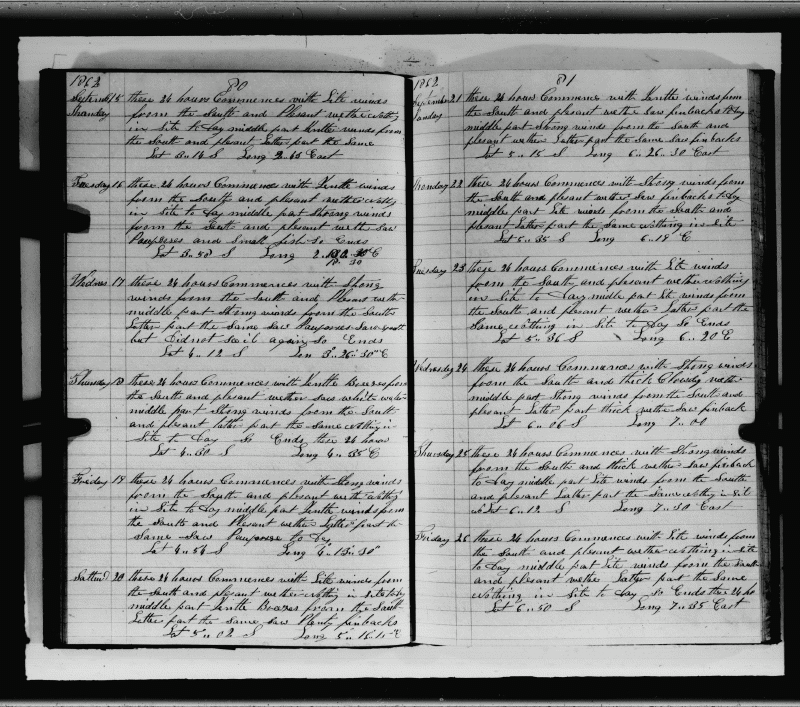 1862
80
September 15 these 24 hours Commences with Lite winds
Monday from the South and Plesant wether nothing
in Site to Day middle part Gentle winds from
the South and plesant Latter part the Same
Lat 3 " 14 S Long 2 " 15 East
Tuesday 16 these 24 hours Commences with Gentle winds
from the South and plesant wether nothing
in Site to Day middle part Strong winds
from the South and plesant wether Saw
Porposes and Small fish So Ends
Lat 3 " 50 S Long 2 "
Wednes 17 these 24 hours Commences with Strong
winds from the South and Plesant wether
middle part Strong winds from the South
Latter part the Same Saw Porposes
but Did not Sail again So Ends
Lat 4 " 12 S Lon 3 " 26 " 30 " E
Thursday 18 these 24 hours Commences with Gentle Breases from
the South and plesant wether Saw white water
middle part Strong winds from the South
and plesant latter part the Same nothing in
Site to Day So Ends these 24 hours
Lat 4 " 30 S Long 4 " 35 E
Friday 19 these 24 hours Commences with Strong winds
from the South and plesant wether nothing
in Site to Day middle part Gentle winds from
the South and Plesant wether Latter part the
Same Saw Porpose to Day
Lat 4 " 54 S Long 4 " 13 " 30
Satturd 20 these 24 hours Commences with Lite winds from
the South and plesant wether nothing in Site to Day
middle part Gentle Breases from the South
Latter part the Same Saw Plenty finbacks
Lat 5 " 02 S Long 5 " 16 " 15 " E
1862
81
September 21 these 24 hours Commence with Gentle winds from
Sunday the South and plesant wether Saw finbacks to Day
middle part Strong winds from the South and
plesant wether Latter part the Same Saw finbacks
Lat 5 " 15 S Long 6 " 26 " 30 East
Monday 22 these 24 hours Commences with Strong winds from
the South and plesant wether Saw finbacks to Day
middle part Lite winds from the South and
plesant Latter part the Same nothing in Site
Lat 5 " 35 S Long 6 " 18 E
Tuesday 23 these 24 hours Commences with Lite winds
from the South and plesant wether nothing
in Site to Day middle part Lite winds from
the South and plesant wether Latter part the
Same nothing in Site to Day So Ends
Lat 5 " 36 S Long 6 " 20 E
Wednesday 24 these 24 hours Commences with Strong winds
from the South and thick Clowdy wether
middle part Strong winds from the South and
plesant Latter part thick wether Saw finback
Lat 6 " 06 S Long 7 " 00
Thursday 25 these 24 hours Commences with Strong winds
from the South and thick wether Saw finback
to Day middle part Lite winds from the South
and plesant Latter part the Same nothing in Site
Lat 6 " 12 S Long 7 " 30 East
Friday 26 these 24 hours Commences with Lite winds from
the South and plesant wether nothing in Site
to Day middle part Lite winds from the South
and plesant wether Latter part the Same
nothing in Site to Day So Ends these 24 ho
Lat 6 " 50 S Long 7 " 35 East